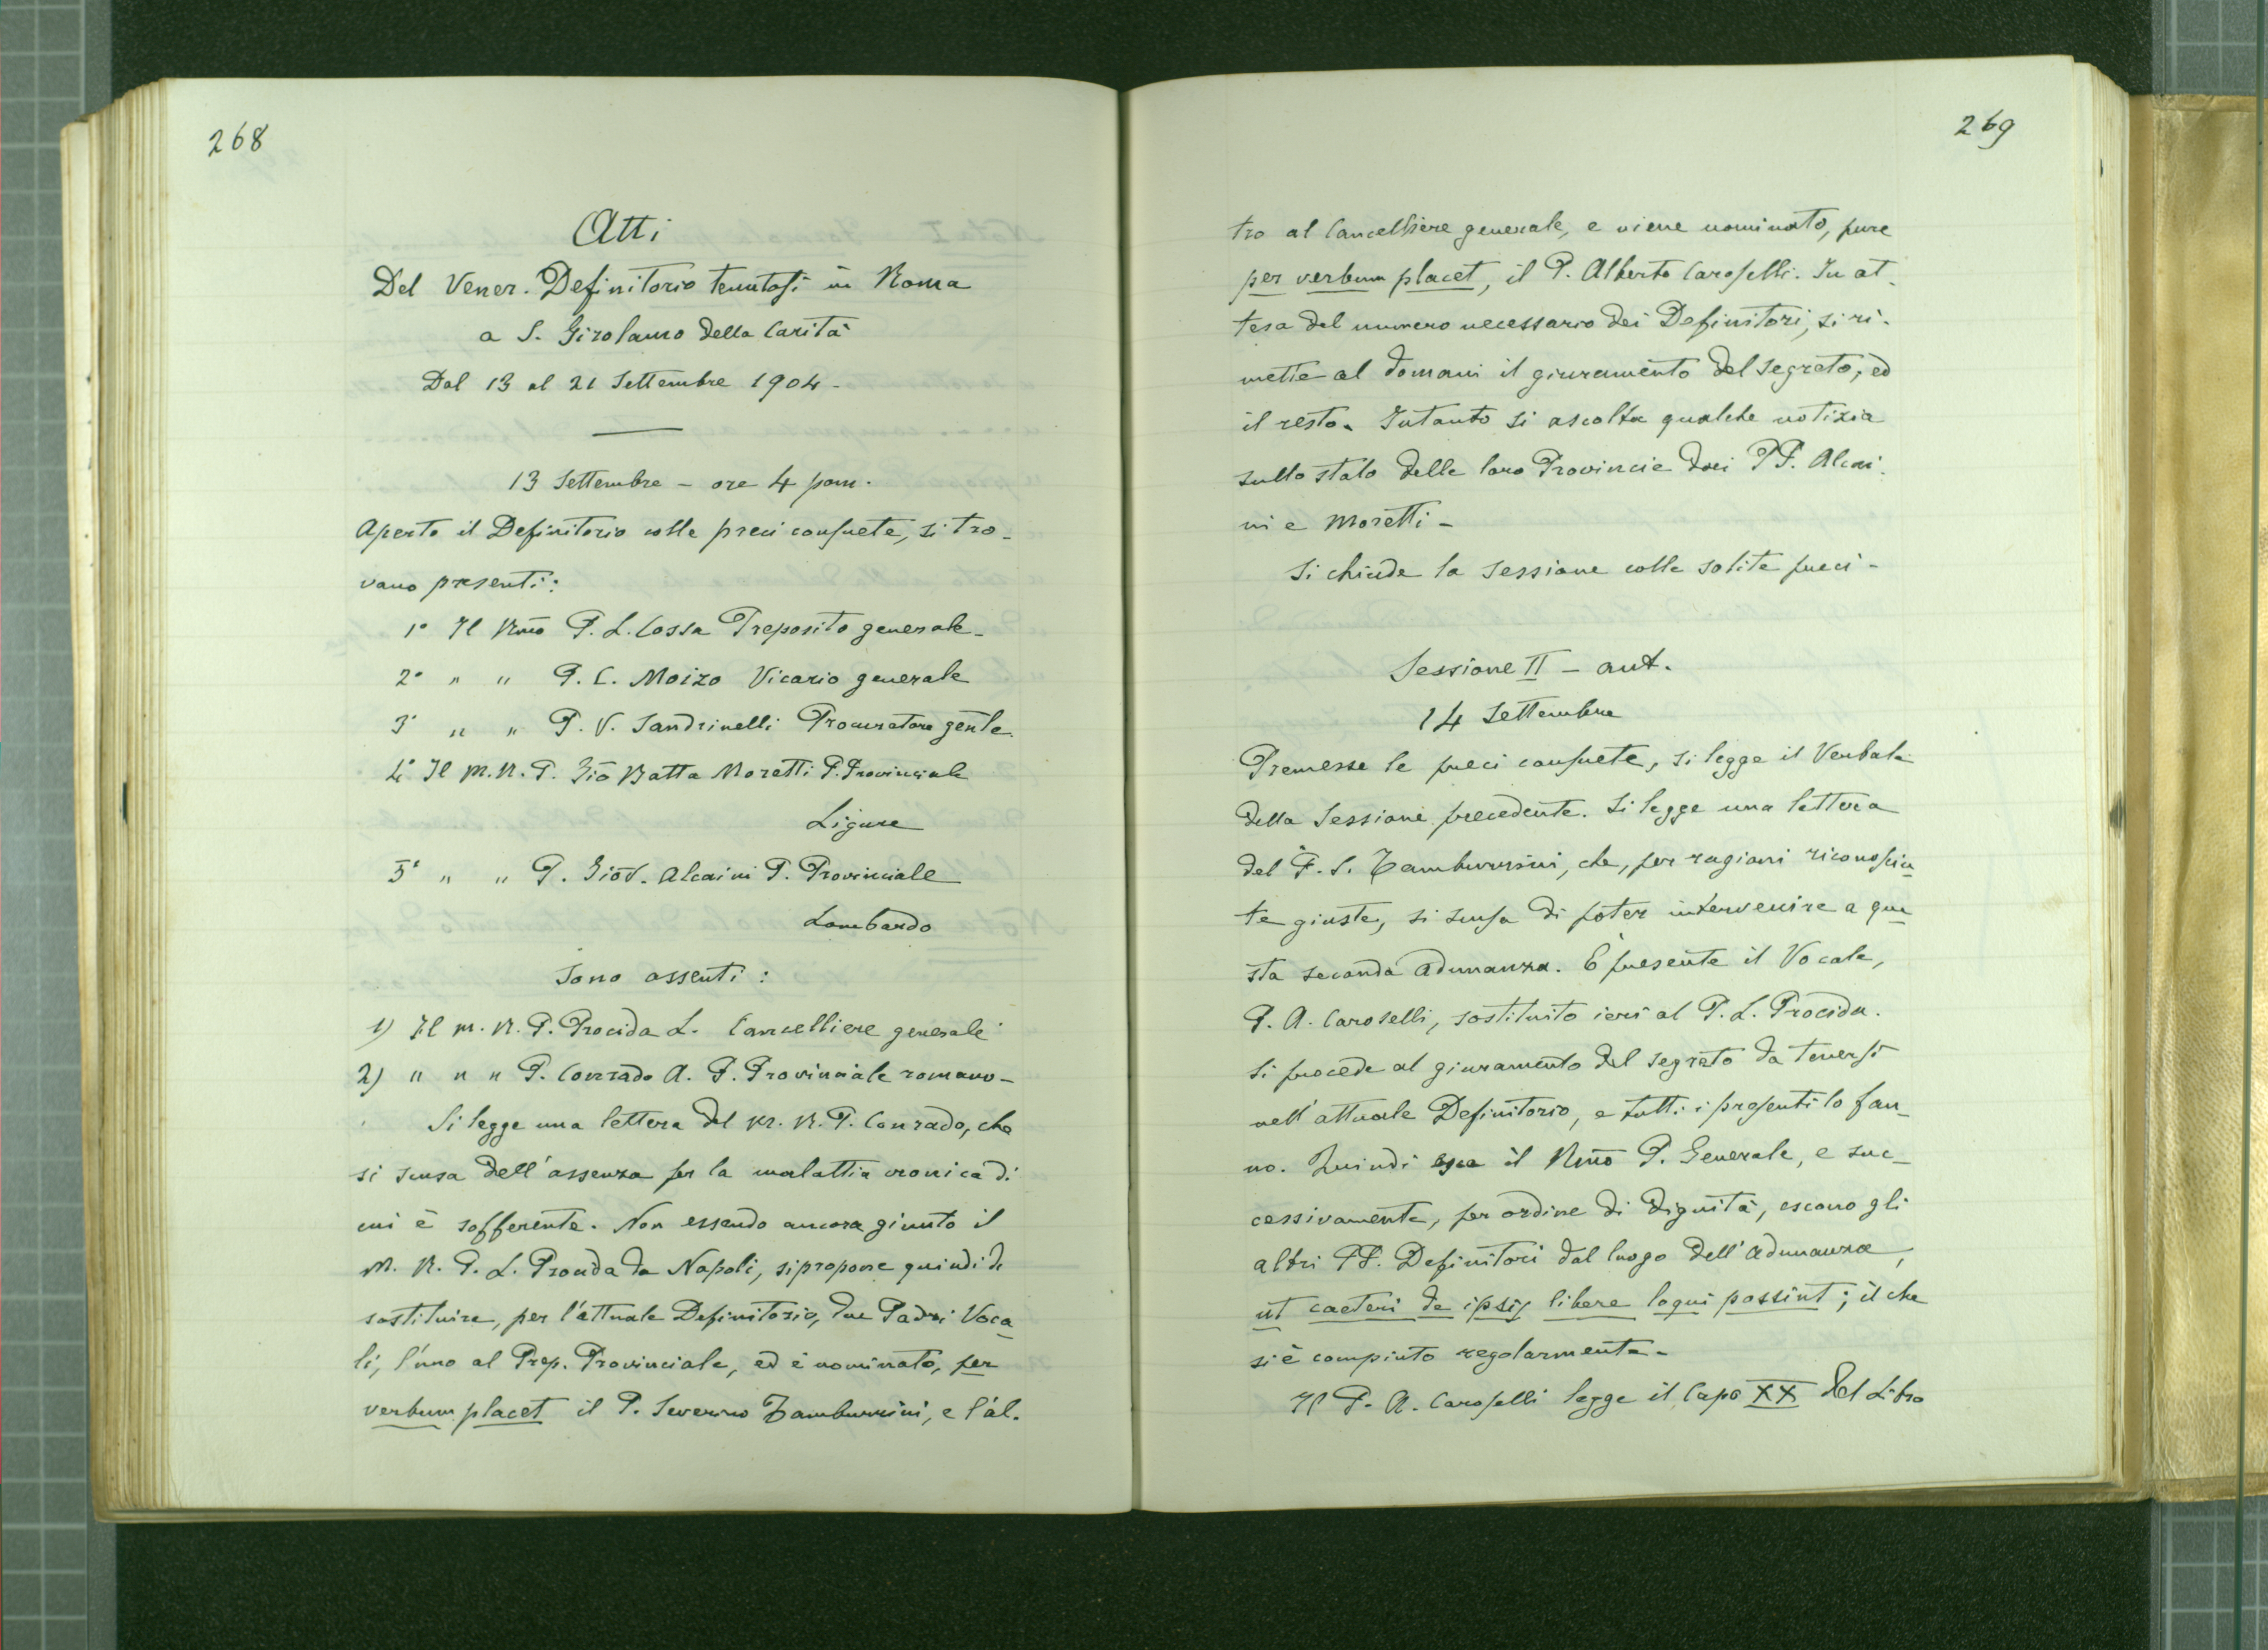 268
Atti
Del Vener. Definitorio tenutosi in Roma
a S. Girolamo della Carità
Dal 13 al 21 Settembre 1904 -
13 Settembre - ore 4 pom.
Aperto il Definitorio colle preci consuete, si tro-
vano presenti:
1° Il Rmo P. L. Cossa Preposito generale -
2° " " P. C. Moizo Vicario generale
3° " " P. V. Sandrinelli Procuratore genle.
4° Il M. R. P. Gio Batta Moretti P. Provinciale
Ligure
5° " " P. Giov. Alcaini P. Provinciale
Lombardo
Sono assenti:
1) Il M. R. P. Procida L. Cancelliere generale
2) " " " P. Conrado A. P. Provinciale romano -
Si legge una lettera del M. R. P. Conrado, che
si scusa dell'assenza per la malattia cronica di
cui è sofferente. Non essendo ancora giunto il
M. R. P. L. Procida da Napoli, si propone quindi di
sostituire, per l'attuale Definitorio, due Padri Voca
li, l'uno al Prep. Provinciale, ed è nominato, per
verbum placet il P. Severino Tamburrini, e l'al-
269
tro al Cancelliere generale, e viene nominato, pure
per verbum placet, il P. Alberto Caroselli. In at-
tesa del numero necessario dei Definitori, si ri-
mette al domani il giuramento del segreto, ed
il resto. Intanto si ascolta qualche notizia
sullo stato delle loro Provincie dai PP. Alcai-
ni e Moretti -
Si chiude la sessione colle solite preci -
Sessione II - ant.
14 Settembre
Premesse le preci consuete, si legge il Verbale
della Sessione precedente. Si legge una lettera
del P. S. Tamburrini, che, per ragioni riconosciu
te giuste, si scusa di poter intervenire a que
sta seconda adunanza. È presente il Vocale,
P. A. Caroselli, sostituito ieri al P. L. Procida.
Si procede al giuramento del segreto da tenersi
nell'attuale Definitorio, e tutti i presenti lo fan-
no. Quindi esce il Rmo P. Generale, e suc-
cessivamente, per ordine di dignità, escono gli
altri PP. Definitori dal luogo dell'adunanza,
ut caeteri de ipsis libere loqui possint; il che
si è compiuto regolarmente -
Il P. A. Caroselli legge il Capo XX del Libro